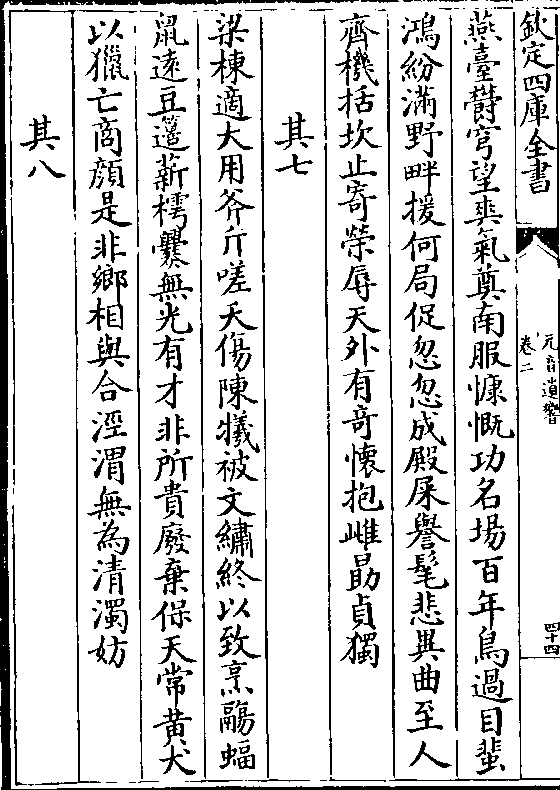 欽定四庫全書
元音遺響
卷二
四十四
燕臺欝穹望爽氣奠南服慷慨功名場百年鳥過目蜚
鴻紛滿野畔援何局促忽忽成殿屎譽髦悲與曲至人
齊機括坎止寄榮辱天外有奇懷抱雌勗貞獨
其七
梁棟適大用斧斤嗟夭傷陳犧被文繡終以致烹鬺蝠
䑕逺豆籩薪樗爨無光有才非所貴廢棄保天常黄犬
以獵亡商顔是非鄉相與合涇渭無為清濁妨
其八